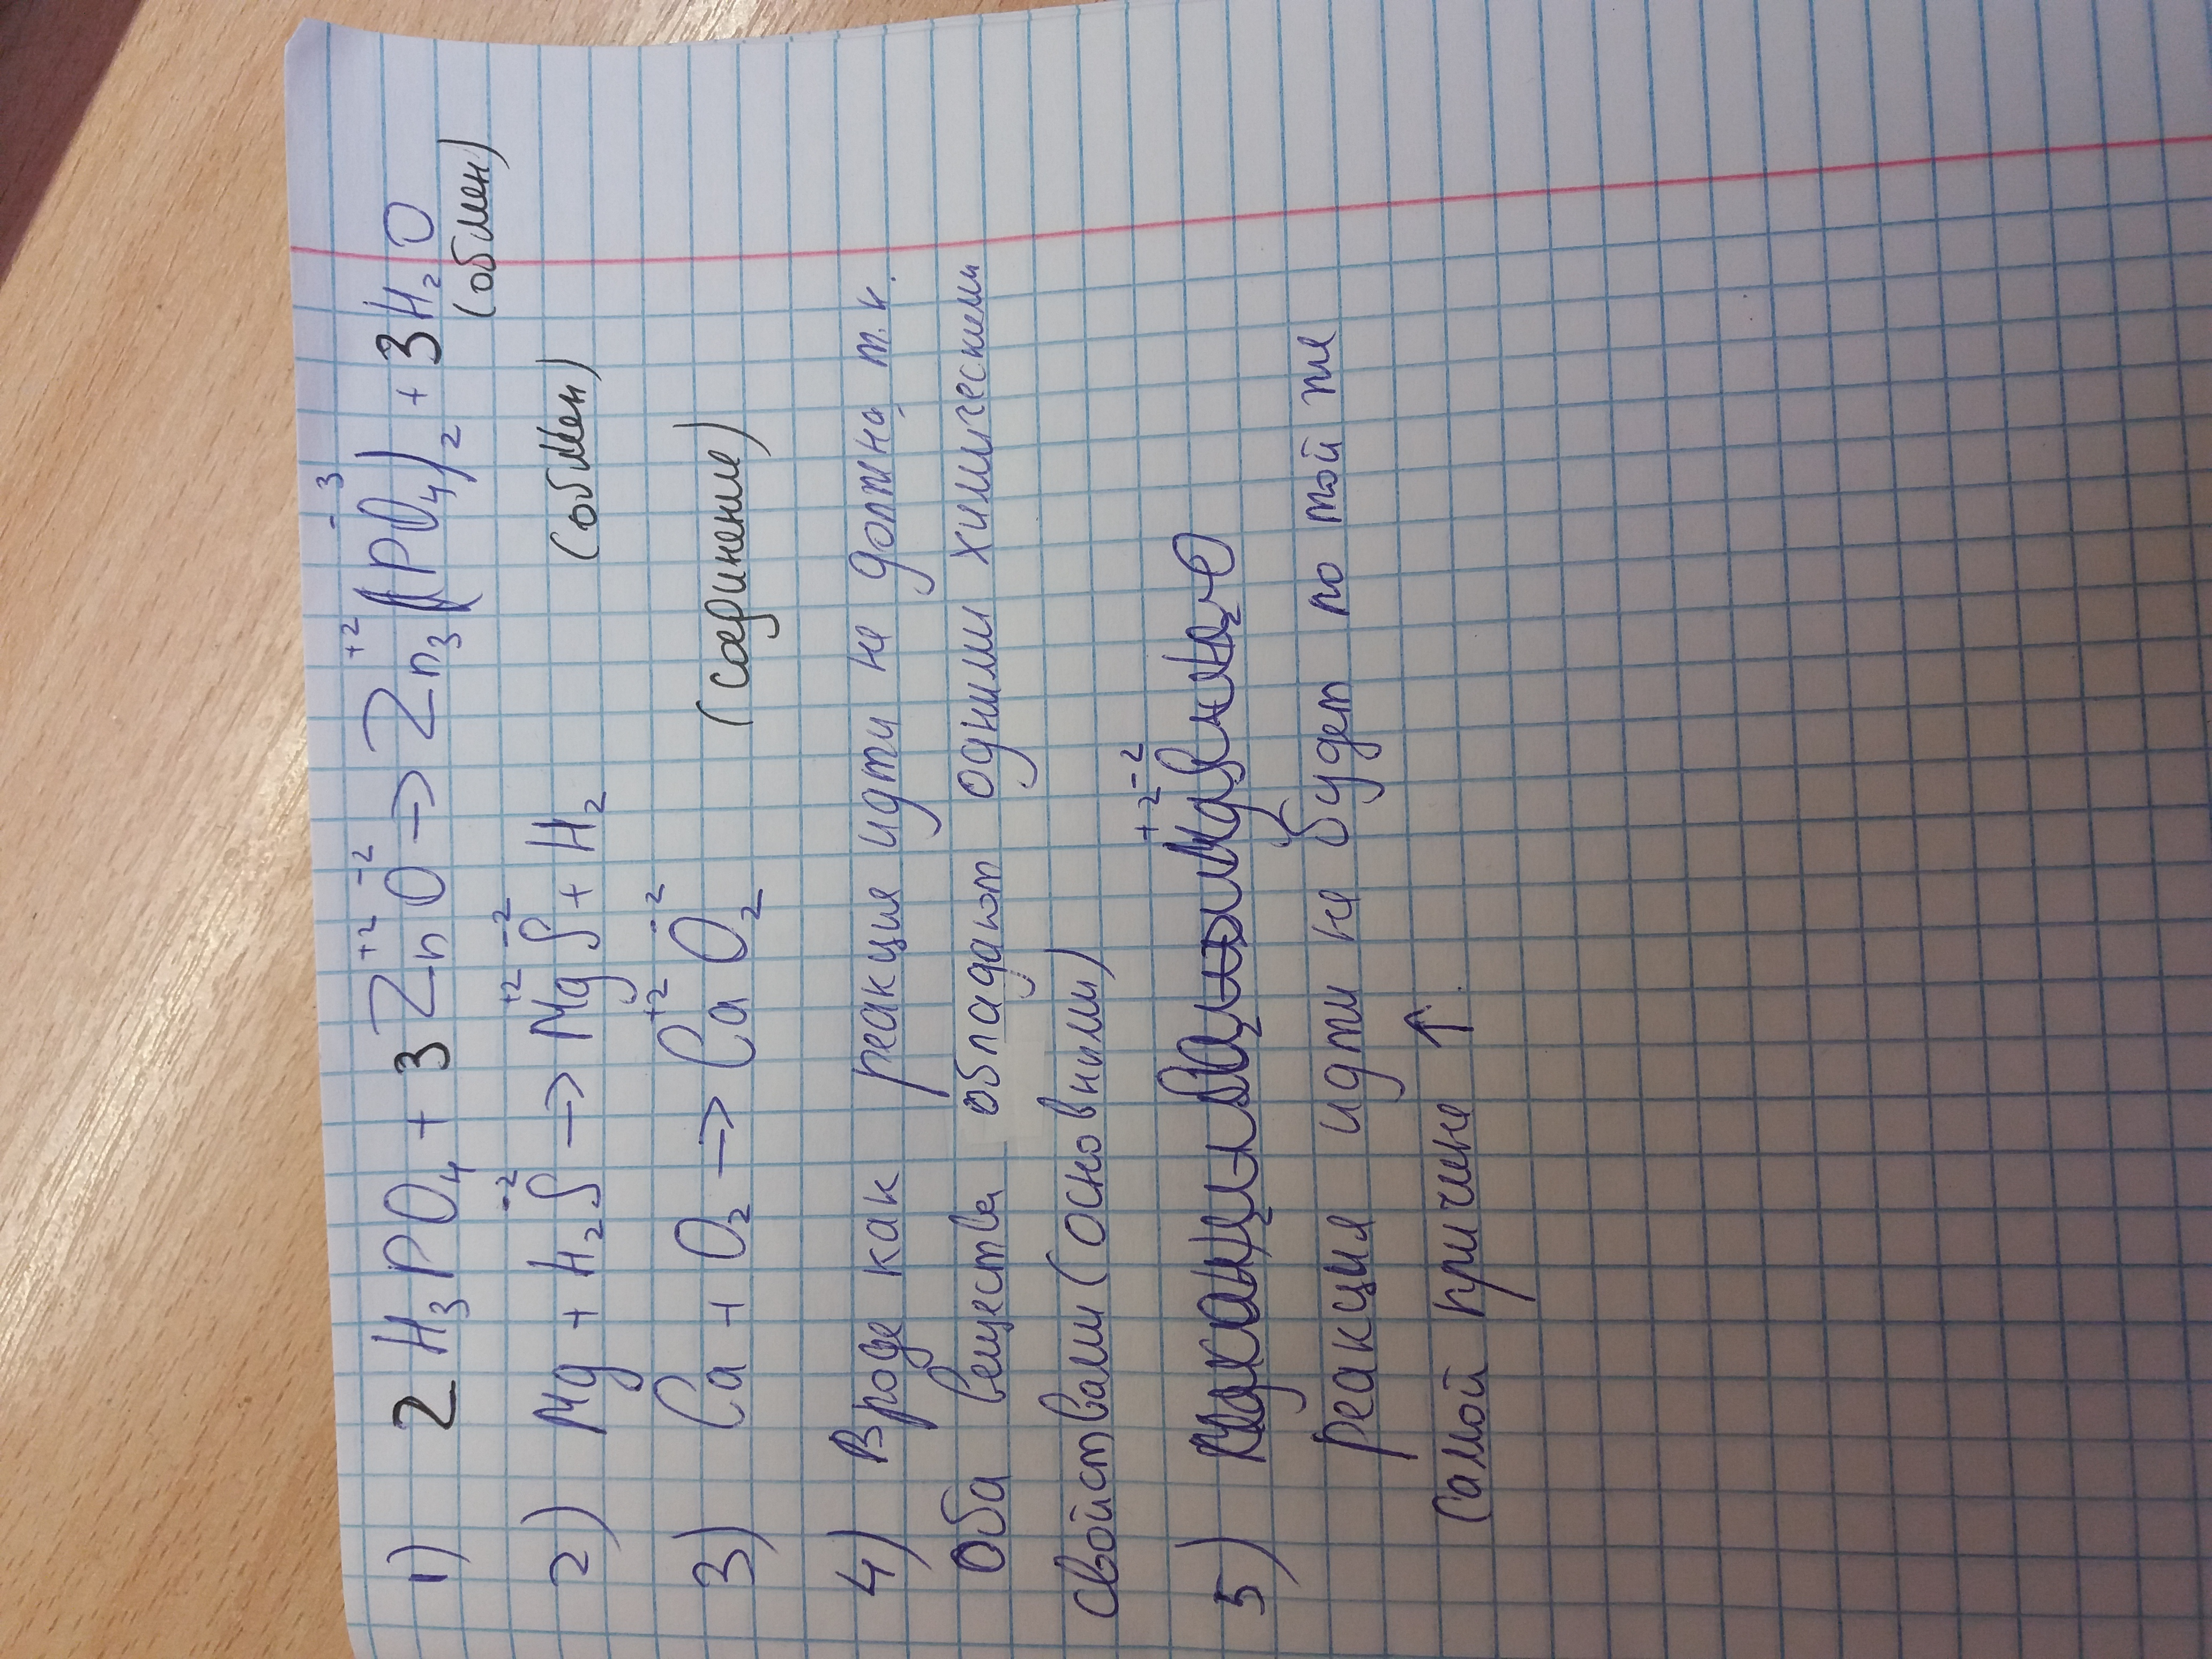 1) 2 H₃PO₄ + 3 Zn⁺²O⁻² → Zn₃⁺²(PO₄)₂⁻³ + 3 H₂O
(обмен)
2) Mg + H₂S⁻² → Mg⁺²S⁻² + H₂ (обмен)
3) Ca + O₂ → Ca⁺²O₂⁻² (соединение)
4) Вроде как реакция идти не должна т.к.
Оба вещества обладают одними химическими
свойствами (основными)
5)
реакция идти не будет по той же
самой причине ↑.